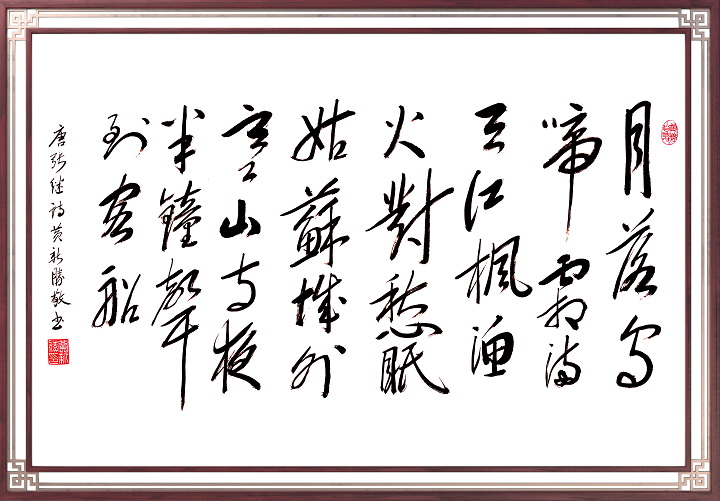 月落烏
啼霜滿
天江楓漁
火對愁眠
姑蘇城外
寒山寺夜
半鐘聲
到客船
唐張继诗黄新勝敬书